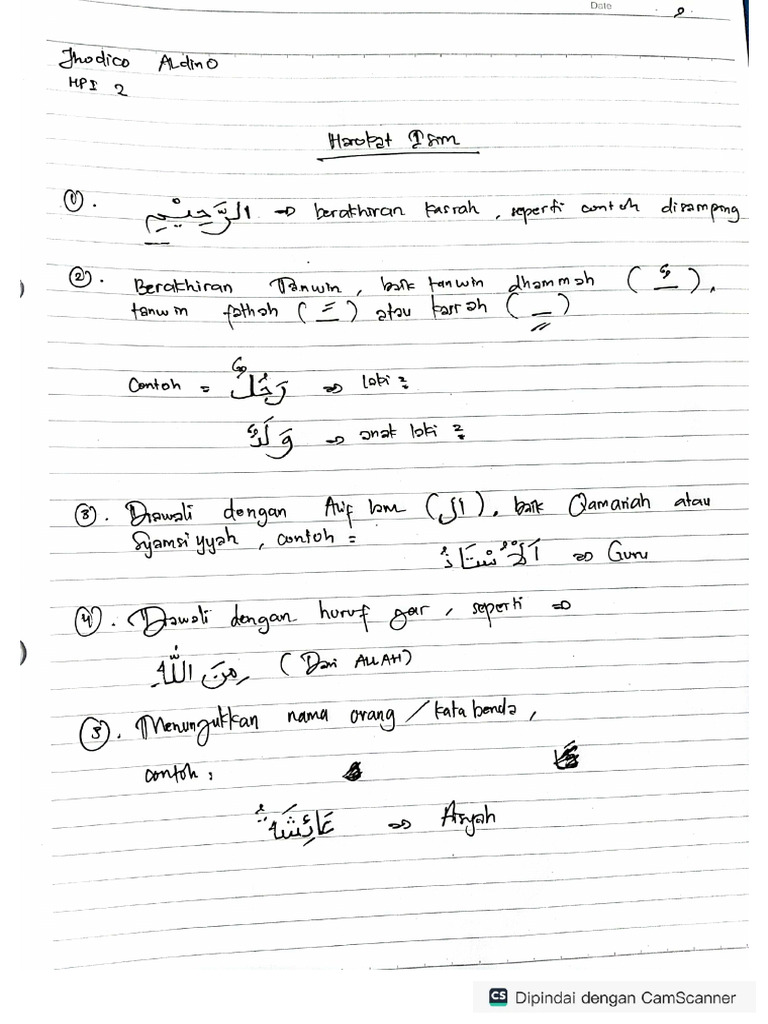 Date
Jhodico Aldino
HPI 2
Harokat Isim
①. الرَّحِيْمِ => berakhiran kasrah, seperti contoh disamping
②. Berakhiran Tanwin, baik tanwin dhammah ( ٌ ),
tanwin fathah ( ً ) atau kasrah ( ٍ )
Contoh = رَجُلٌ => laki²
وَلَدٌ => anak laki²
③. Diawali dengan Alif lam (ال), baik Qamariah atau
Syamsiyyah, contoh =
اَلْأُسْتَاذُ => Guru
④. Diawali dengan huruf jar, seperti =>
مِنَ اللّٰهِ (Dari ALLAH)
⑤. Menunjukkan nama orang / kata benda,
contoh :
عَائِشَةُ => Aisyah
CS Dipindai dengan CamScanner